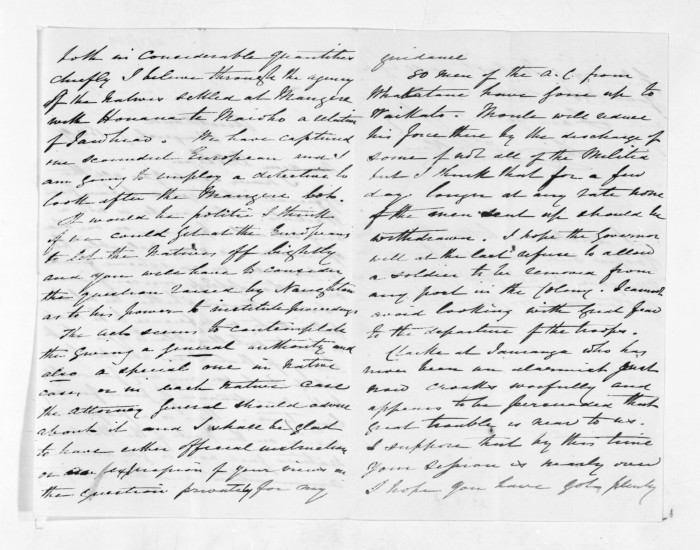 both in Considerable Quantities
chiefly I believe through the agency
of the Natives settled at Mangere
with Honana te Maioho a relation
of Tawhiao. We have captured
one scoundrel European and I
am going to employ a detective to
look after the Mangere lot.
It would be politic I think
if we could get at the Europeans
to let the Natives off lightly
and you will have to consider
the question raised by Naughton
as to his power to institute proceedings
The acts seem to contemplate
the giving a general authority and
also a special one in native
cases or in each native case
the Attorney General should advise
about it and I shall be glad
to have either official instruction
or an expression of your views on
the question privately for my
guidance
80 men of the A.C. from
have gone up to
Waikato. Moule will reduce
his force there by the discharge of
some if not all of the Militia
but I think that for a few
days longer at any rate none
of the men sent up should be
withdrawn. I hope the Governor
will at the last refuse to allow
a soldier to be removed from
any post in the Colony. I cannot
avoid looking with great fear
to the departure of the troops.
Clarke at Tauranga who has
never been an alarmist just
now croaks woefully and
appears to be persuaded that
great trouble is near to us.
I suppose that by this time
your session is nearly over
I hope you have got plenty